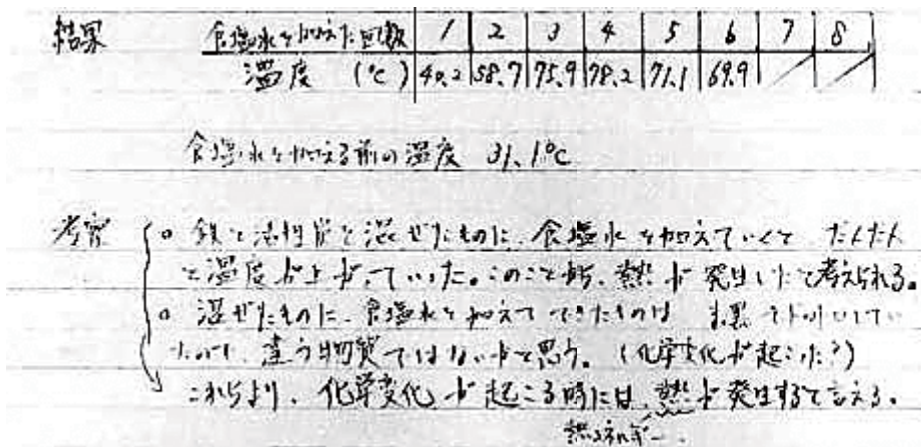 結果 食塩水を加えた回数 1 2 3 4 5 6 7 8
温度 (℃) 40.2 58.7 75.9 78.2 71.1 69.9
食塩水を加える前の温度 31.1℃
考察 ○ 鉄と活性炭を混ぜたものに、食塩水を加えていくと、だんだん
と温度が上がっていった。このことから、熱が発生したと考えられる。
○ 混ぜたものに、食塩水を加えてできたものは
違う物質ではないかと思う。(化学変化が起こった?)
これらより、化学変化が起こる時には、熱が発生すると言える。
熱エネルギー